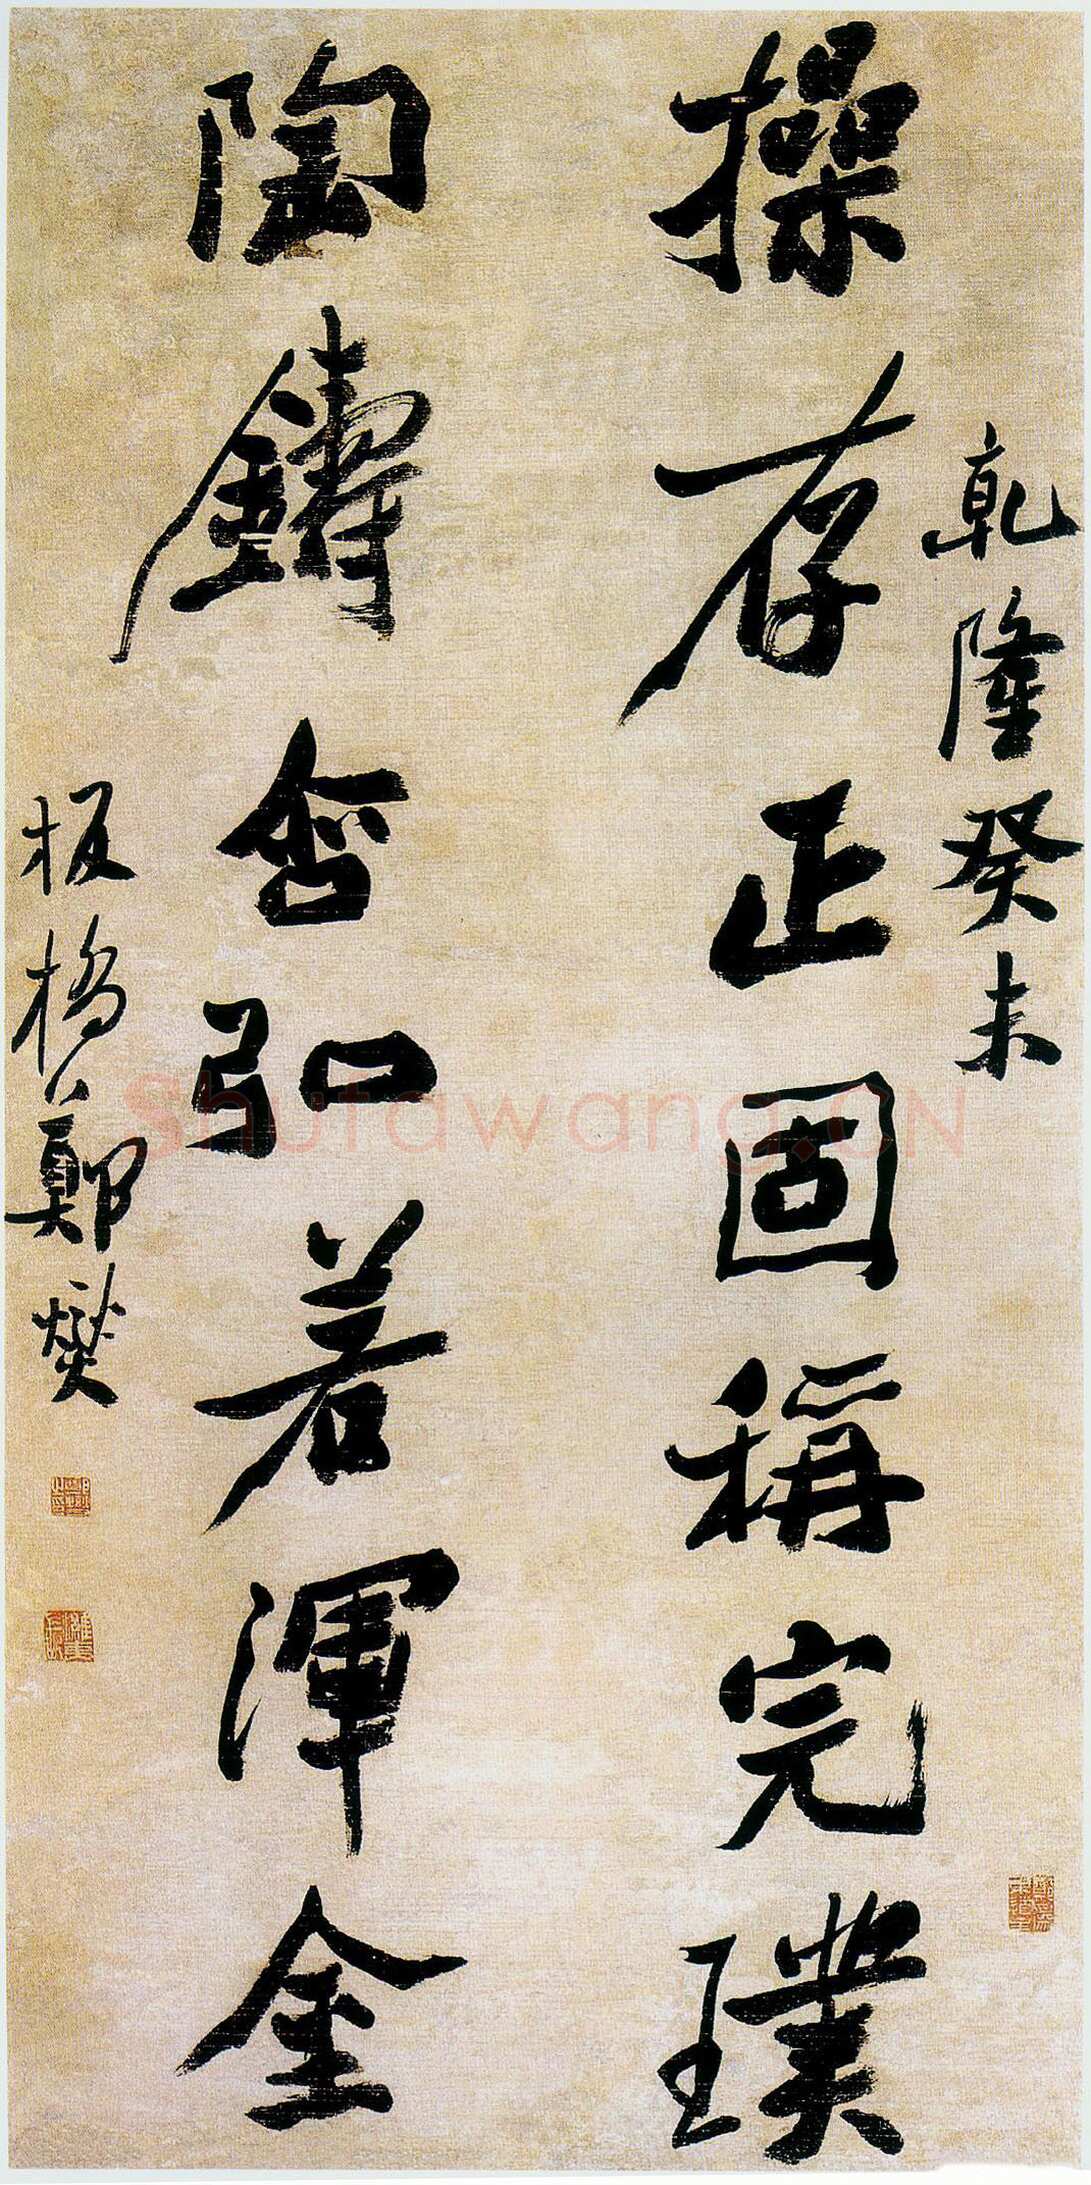 乾隆癸未
操存正固稱完璞
陶鑄含弘若渾金
板橋鄭燮
shufawang.CN